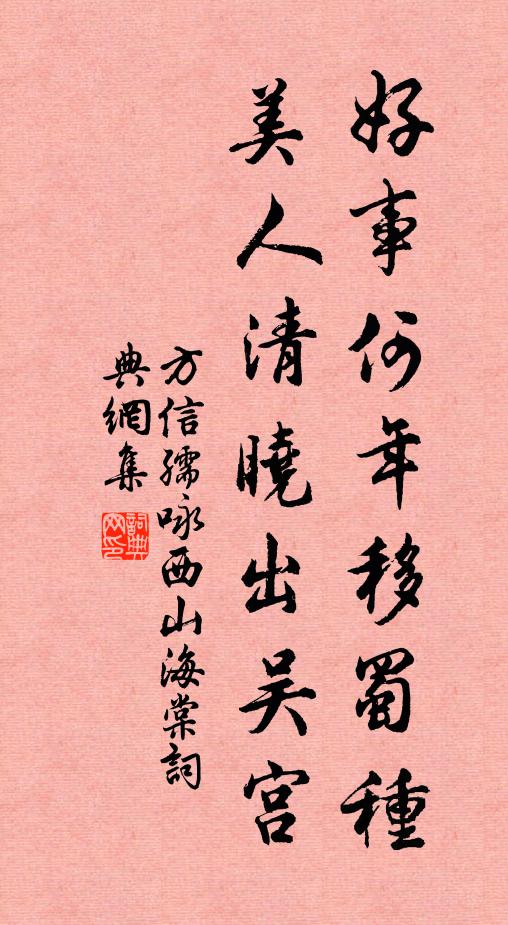 好事何年移蜀種
美人清曉出吴宫
方信孺咏西山海棠詞
典網集
詞典网印